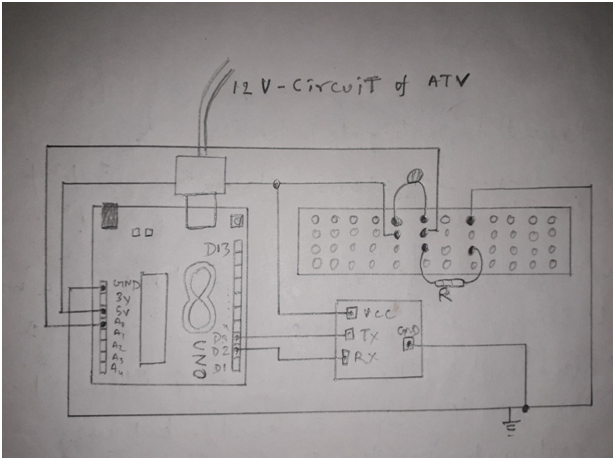 12V-Circuit of ATV
D13
GND
3V
5V
A0
A1
A2
A3
A4
UNO
D3
D2
D1
VCC
TX
RX
GND
R